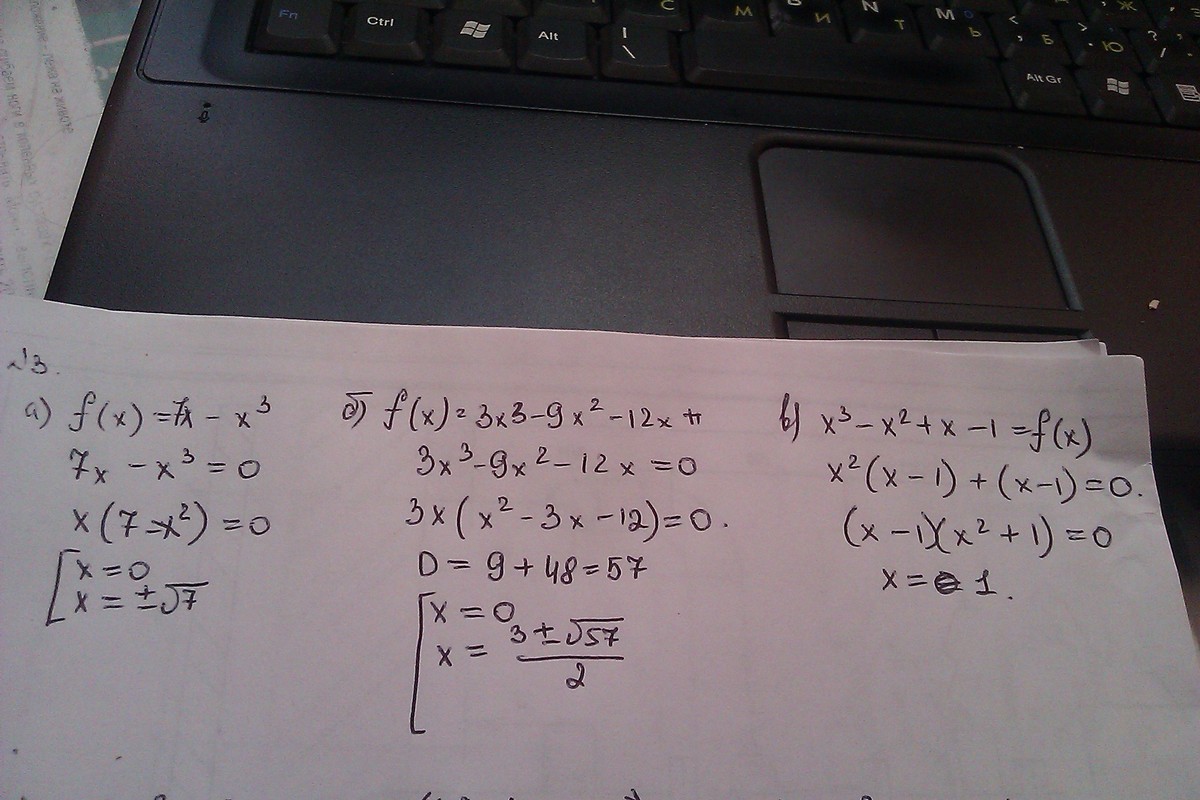 Fn Ctrl Alt | \ Alt Gr
№3.
а) f(x)=7x - x³
7x - x³ = 0
x(7-x²) = 0
[ x = 0
x = ±√7
б) f(x)=3x3-9x²-12x
3x³-9x²-12x = 0
3x(x²-3x-12)=0.
D = 9+48=57
[ x = 0
x = (3±√57)/2
в) x³-x²+x-1=f(x)
x²(x-1)+(x-1)=0.
(x-1)(x²+1)=0
x = 1.